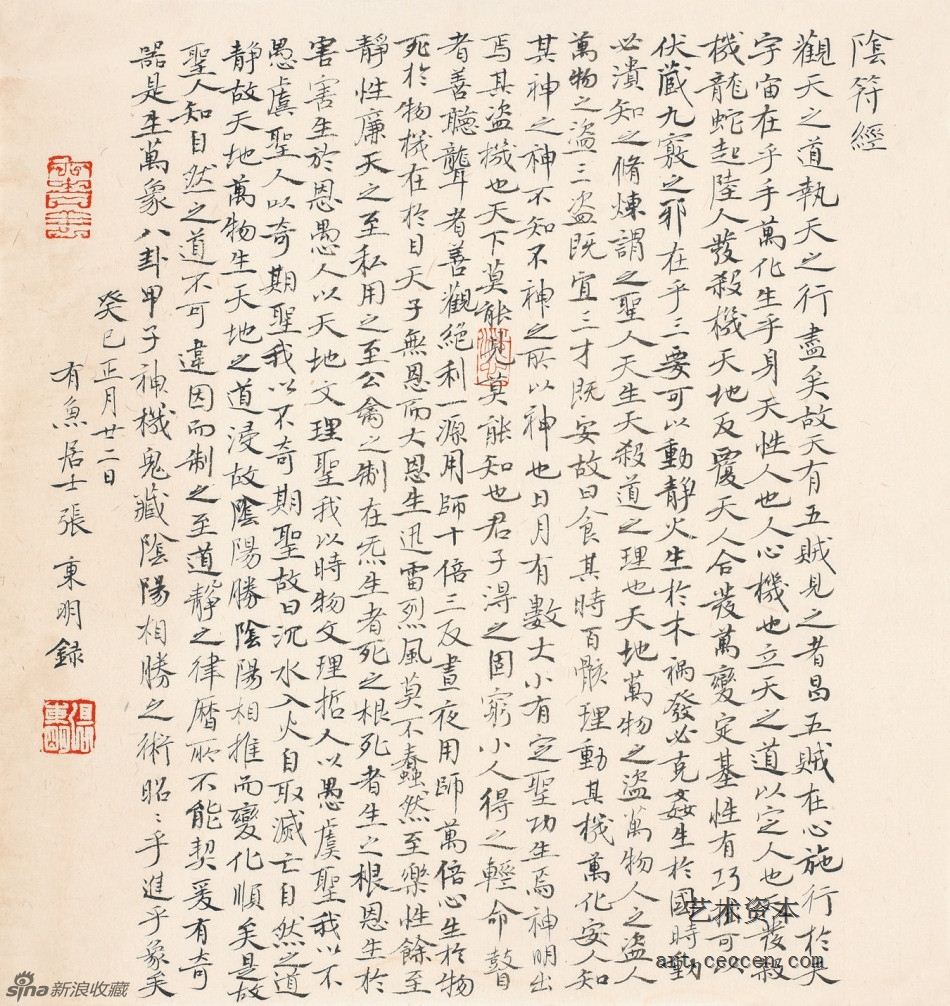 陰符經
觀天之道執天之行盡矣故天有五賊見之者昌五賊在心施行於天
宇宙在乎手萬化生乎身天性人也人心機也立天之道以定人也天發殺
機龍蛇起陸人發殺機天地反覆天人合發萬變定基性有巧拙可以
伏藏九竅之邪在乎三要可以動靜火生於木禍發必克姦生於國時動
必潰知之脩煉謂之聖人天生天殺道之理也天地萬物之盜萬物人之盜人
萬物之盜三盜既宜三才既安故曰食其時百骸理動其機萬化安人知
其神之神不知不神之所以神也日月有數大小有定聖功生焉神明出
焉其盜機也天下莫能見莫能知也君子得之固窮小人得之輕命瞽
者善聽聾者善觀絕利一源用師十倍三反晝夜用師萬倍心生於物
死於物機在於目天子無恩而大恩生迅雷烈風莫不蠢然至樂性餘至
靜性廉天之至私用之至公禽之制在炁生者死之根死者生之根恩生於
害害生於恩愚人以天地文理聖我以時物文理哲人以愚虞聖我以不
愚虞聖人以奇期聖我以不奇期聖故曰沉水入火自取滅亡自然之道
靜故天地萬物生天地之道浸故陰陽勝陰陽相推而變化順矣是故
聖人知自然之道不可違因而制之至道靜之律曆所不能契爰有奇
器是生萬象八卦甲子神機鬼藏陰陽相勝之術昭〻乎進乎象矣
癸巳正月廿二日
有魚居士張東明錄
艺术资本
art.ceocen.com
sina新浪收藏